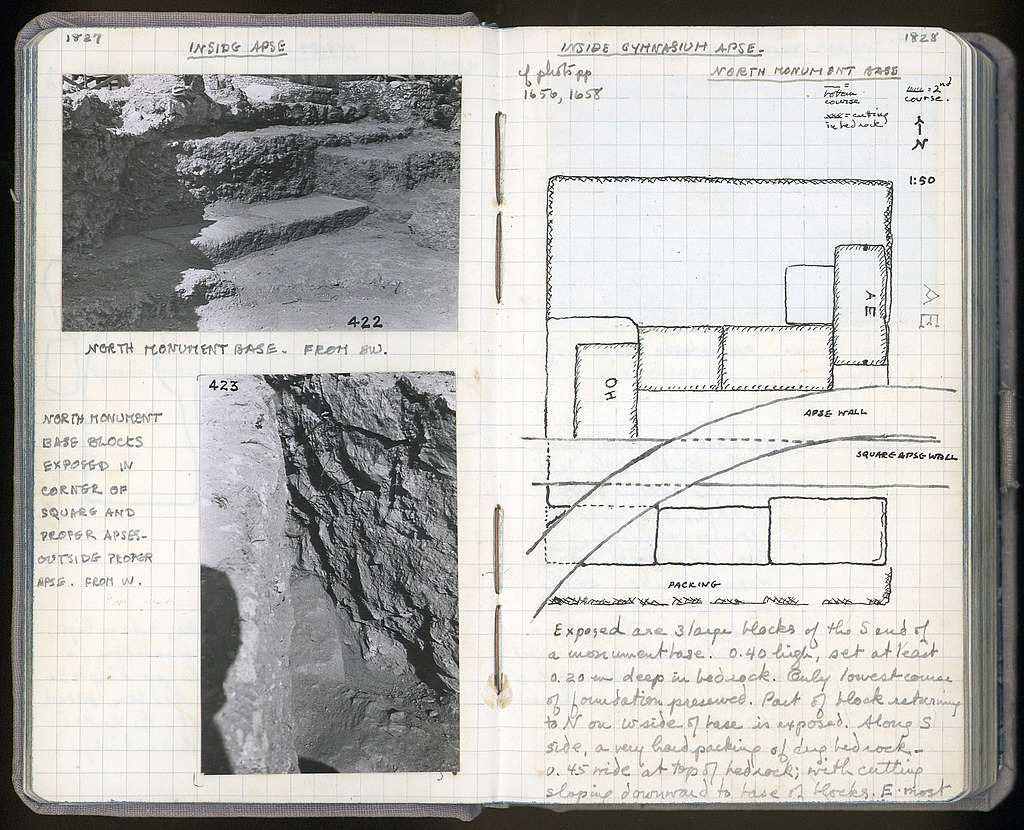 1827
INSIDE APSE
422
NORTH MONUMENT BASE. FROM SW.
423
NORTH MONUMENT
BASE BLOCKS
EXPOSED IN
CORNER OF
SQUARE AND
PROPER APSES-
OUTSIDE PROPER
APSE. FROM W.
1828
INSIDE GYMNASIUM APSE.
NORTH MONUMENT BASE
cf photos pp
1656, 1658
= bottom
course
= cutting
in bedrock
= 2nd
course.
N
1:50
AE
AE
OH
APSE WALL
SQUARE APSE WALL
PACKING
Exposed are 3 large blocks of the S end of
a monument base. 0.40 high, set at least
0.20 m deep in bedrock. Only lowest course
of foundation preserved. Part of block returning
to N on W side of base is exposed. Along S
side, a very hard packing of dug bedrock -
0.45 wide at top of bedrock; with cutting
sloping downward to base of blocks. E-most